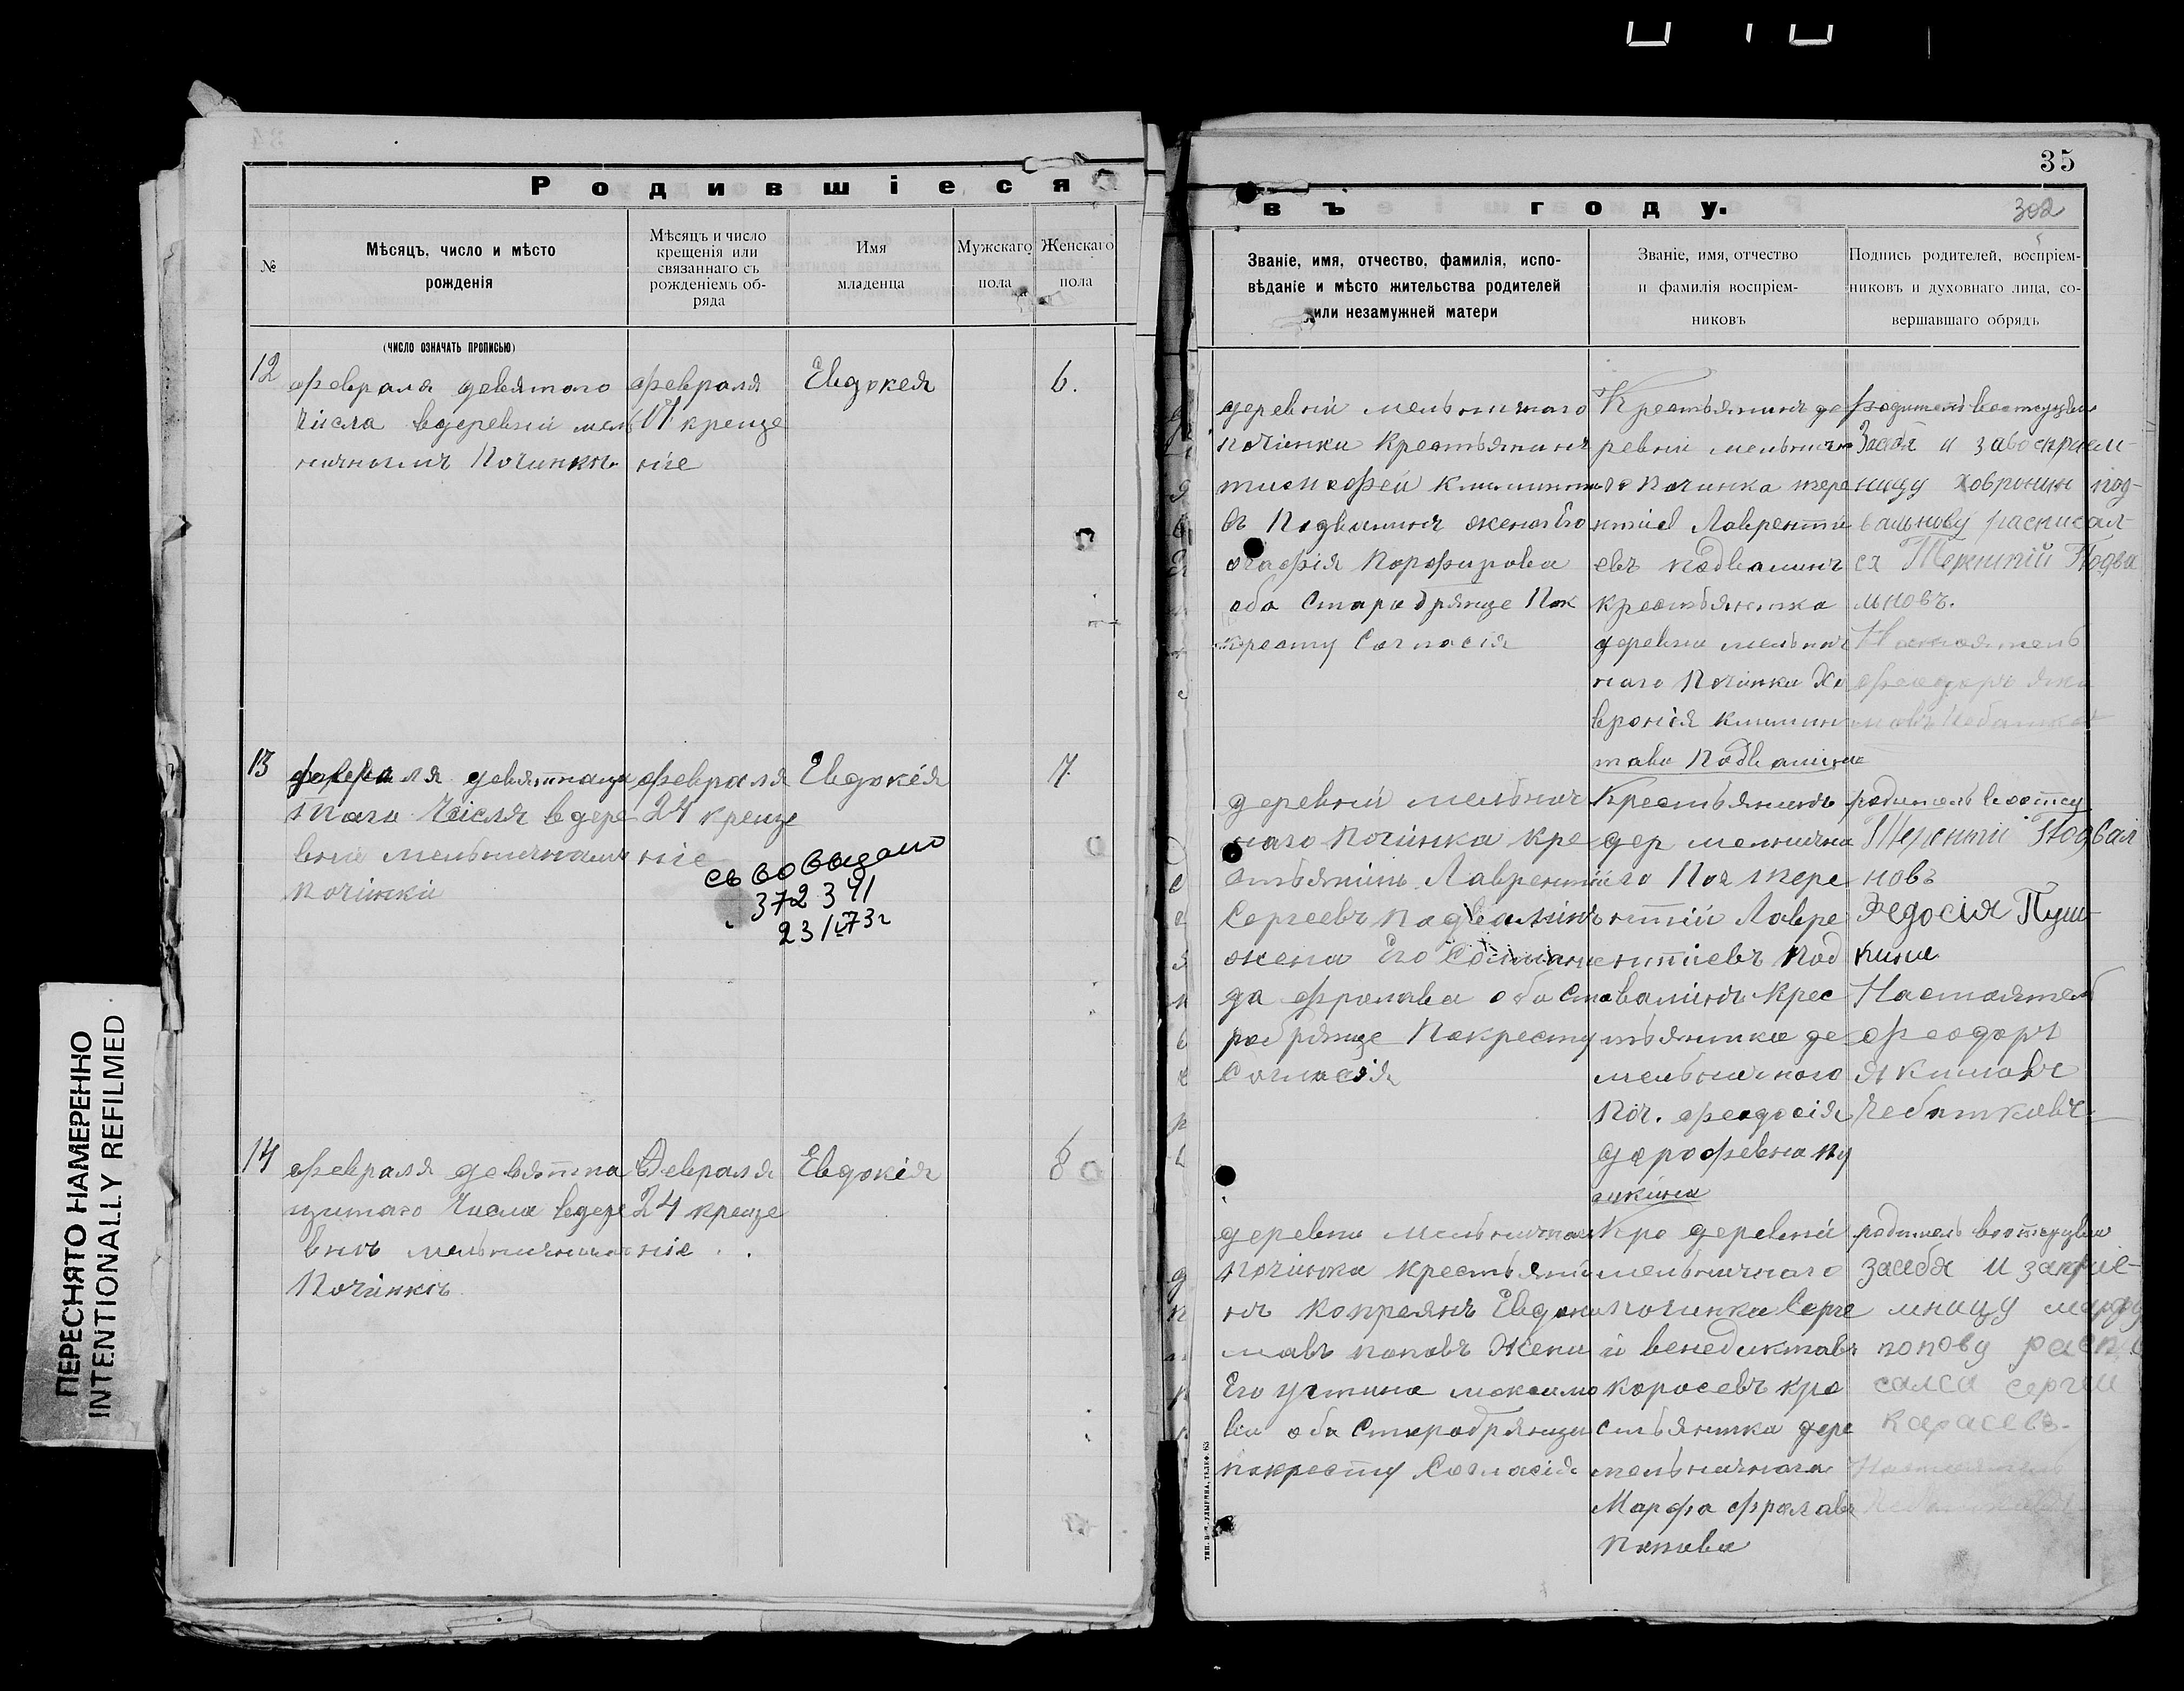 35
302
Родившіеся
въ году.
№
Мѣсяцъ, число и мѣсто
рожденія
Мѣсяцъ и число
крещенія или
связаннаго съ
рожденіемъ об-
ряда
Имя
младенца
Мужскаго
пола
Женскаго
пола
Званіе, имя, отчество, фамилія, испо-
вѣданіе и мѣсто жительства родителей
или незамужней матери
Званіе, имя, отчество
и фамилія воспріем-
никовъ
Подпись родителей, воспріем-
никовъ и духовнаго лица, со-
вершавшаго обрядъ
(число означать прописью)
12
февраля девятого
числа вдеревни мель
ничномъ Починки
февраля
крещe
ніе
Евдокея
6.
деревни мельничного
починка Крестьянинъ
въ Подвалинъ жена Его
Агафія Порфирова
оба Старобрятце Пок
кресту Согласія
Крестьянинъ де
ревни мельнично
го Починка тере
нтiев Лаврентiи
евъ Подвалинъ
крестьянтка
деревни мельнич
наго Починка Хо
врония климин
това Подвалина
родитель воотсуцвии
Засебя и завоспрiем
ницу Ховронию под-
вальнову расписал-
ся Терентiй Подва
льновъ.
Настоятель
феодоръ яки
мовъ Чебатков
13
февраля девятнаца
таго числа вдере
вни мельничномъ
починки
февраля
24 креще
ніе
Евдокея
7.
св во выдано
372341
23/V73г
деревни мельнич
наго починка кре
стьянинъ Лаврентiи
Сергеевъ Подвалинъ
жена Его Соломани
да фролава оба Ста
робрятце Покресту
Согласія
Крестьянинъ
дер мельнична
го Поч тере
нтiи Лавре
нтиевъ Под
валинъ Крес
тьянтка де
мельничного
Поч. феодосія
дорофевна пу
шкина
родитель воотсу
Терентi Подвал
новъ
Федосiя Пуш-
кина
Настоятель
феодоръ
якимовъ
Чебатковъ
14
февраля девятна
цатаго числа вдере
внъ мельничномъ
Починкъ
Февраля
24 креще
ніе
Евдокія
8
деревни мельнична
починка крестьяни
нъ Копреянъ Евдоки
мавъ поповъ Жена
Его устина максимо
ва оба Старобрятци
покресту Согласія
Кре деревни
мельничного
починка Серге
й венедиктавъ
коросевъ кре
стьянтка дере
мельничнага
Марфа фролава
Попава
родитель воотсуцвии
засебя и запрiе-
мницу марфу
попову распи
салса сергеи
карасевъ.
Настоятель
ПЕРЕСНЯТО НАМЕРЕННО
INTENTIONALLY REFILMED